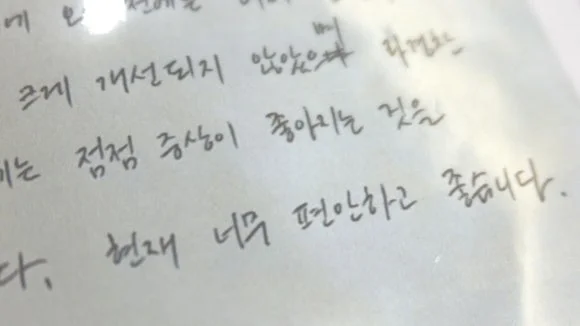 크게 개선되지 않았으며
는 점점 증상이 좋아지는 것을
다. 현재 너무 편안하고 좋습니다.